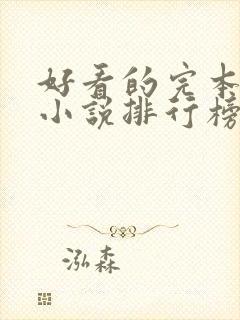 好看的完本
小说排行榜
泓森